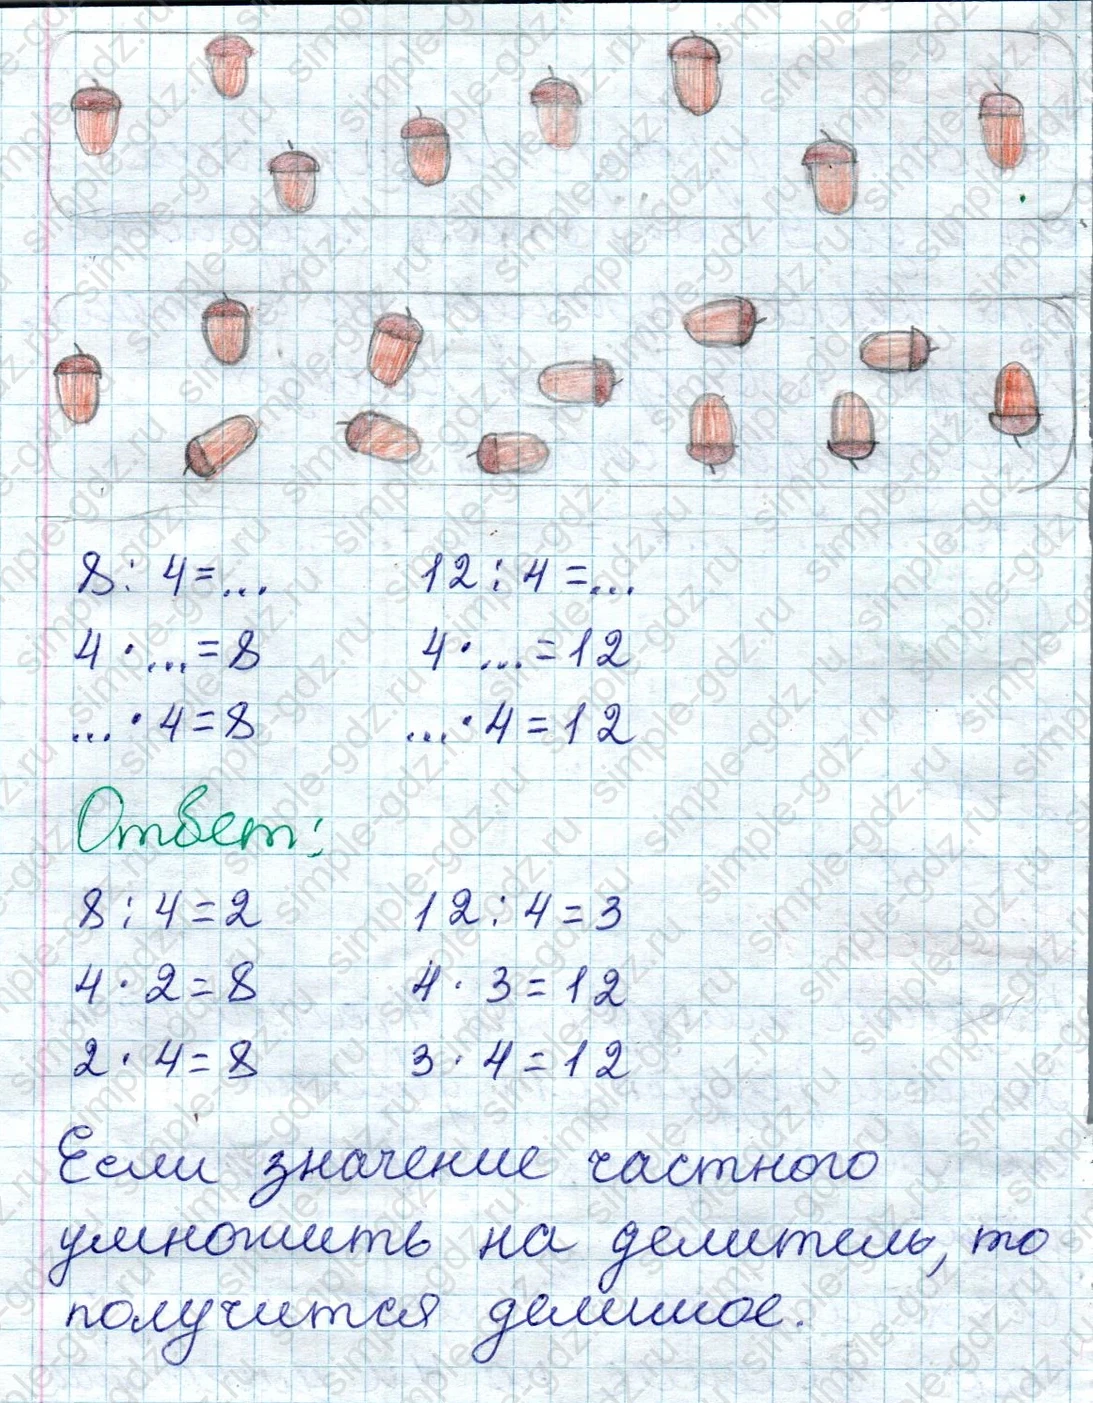 8 : 4 = ... 12 : 4 = ...
4 · ... = 8 4 · ... = 12
... · 4 = 8 ... · 4 = 12
Ответ:
8 : 4 = 2 12 : 4 = 3
4 · 2 = 8 4 · 3 = 12
2 · 4 = 8 3 · 4 = 12
Если значение частного
умножить на делитель, то
получится делимое.
simple-gdz.ru